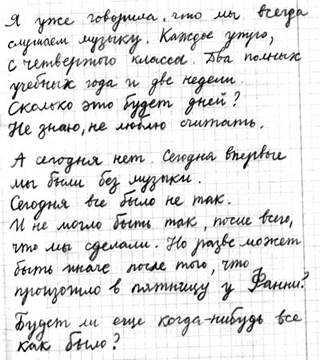 Я уже говорила, что мы всегда
слушаем музыку. Каждое утро,
с четвертого класса. Два полных
учебных года и две недели.
Сколько это будет дней?
Не знаю, не люблю считать.
А сегодня нет. Сегодня впервые
мы были без музыки.
Сегодня все было не так.
И не могло быть так, после всего,
что мы сделали. Но разве может
быть иначе после того, что
произошло в пятницу у Фанни?
Будет ли еще когда-нибудь все
как было?